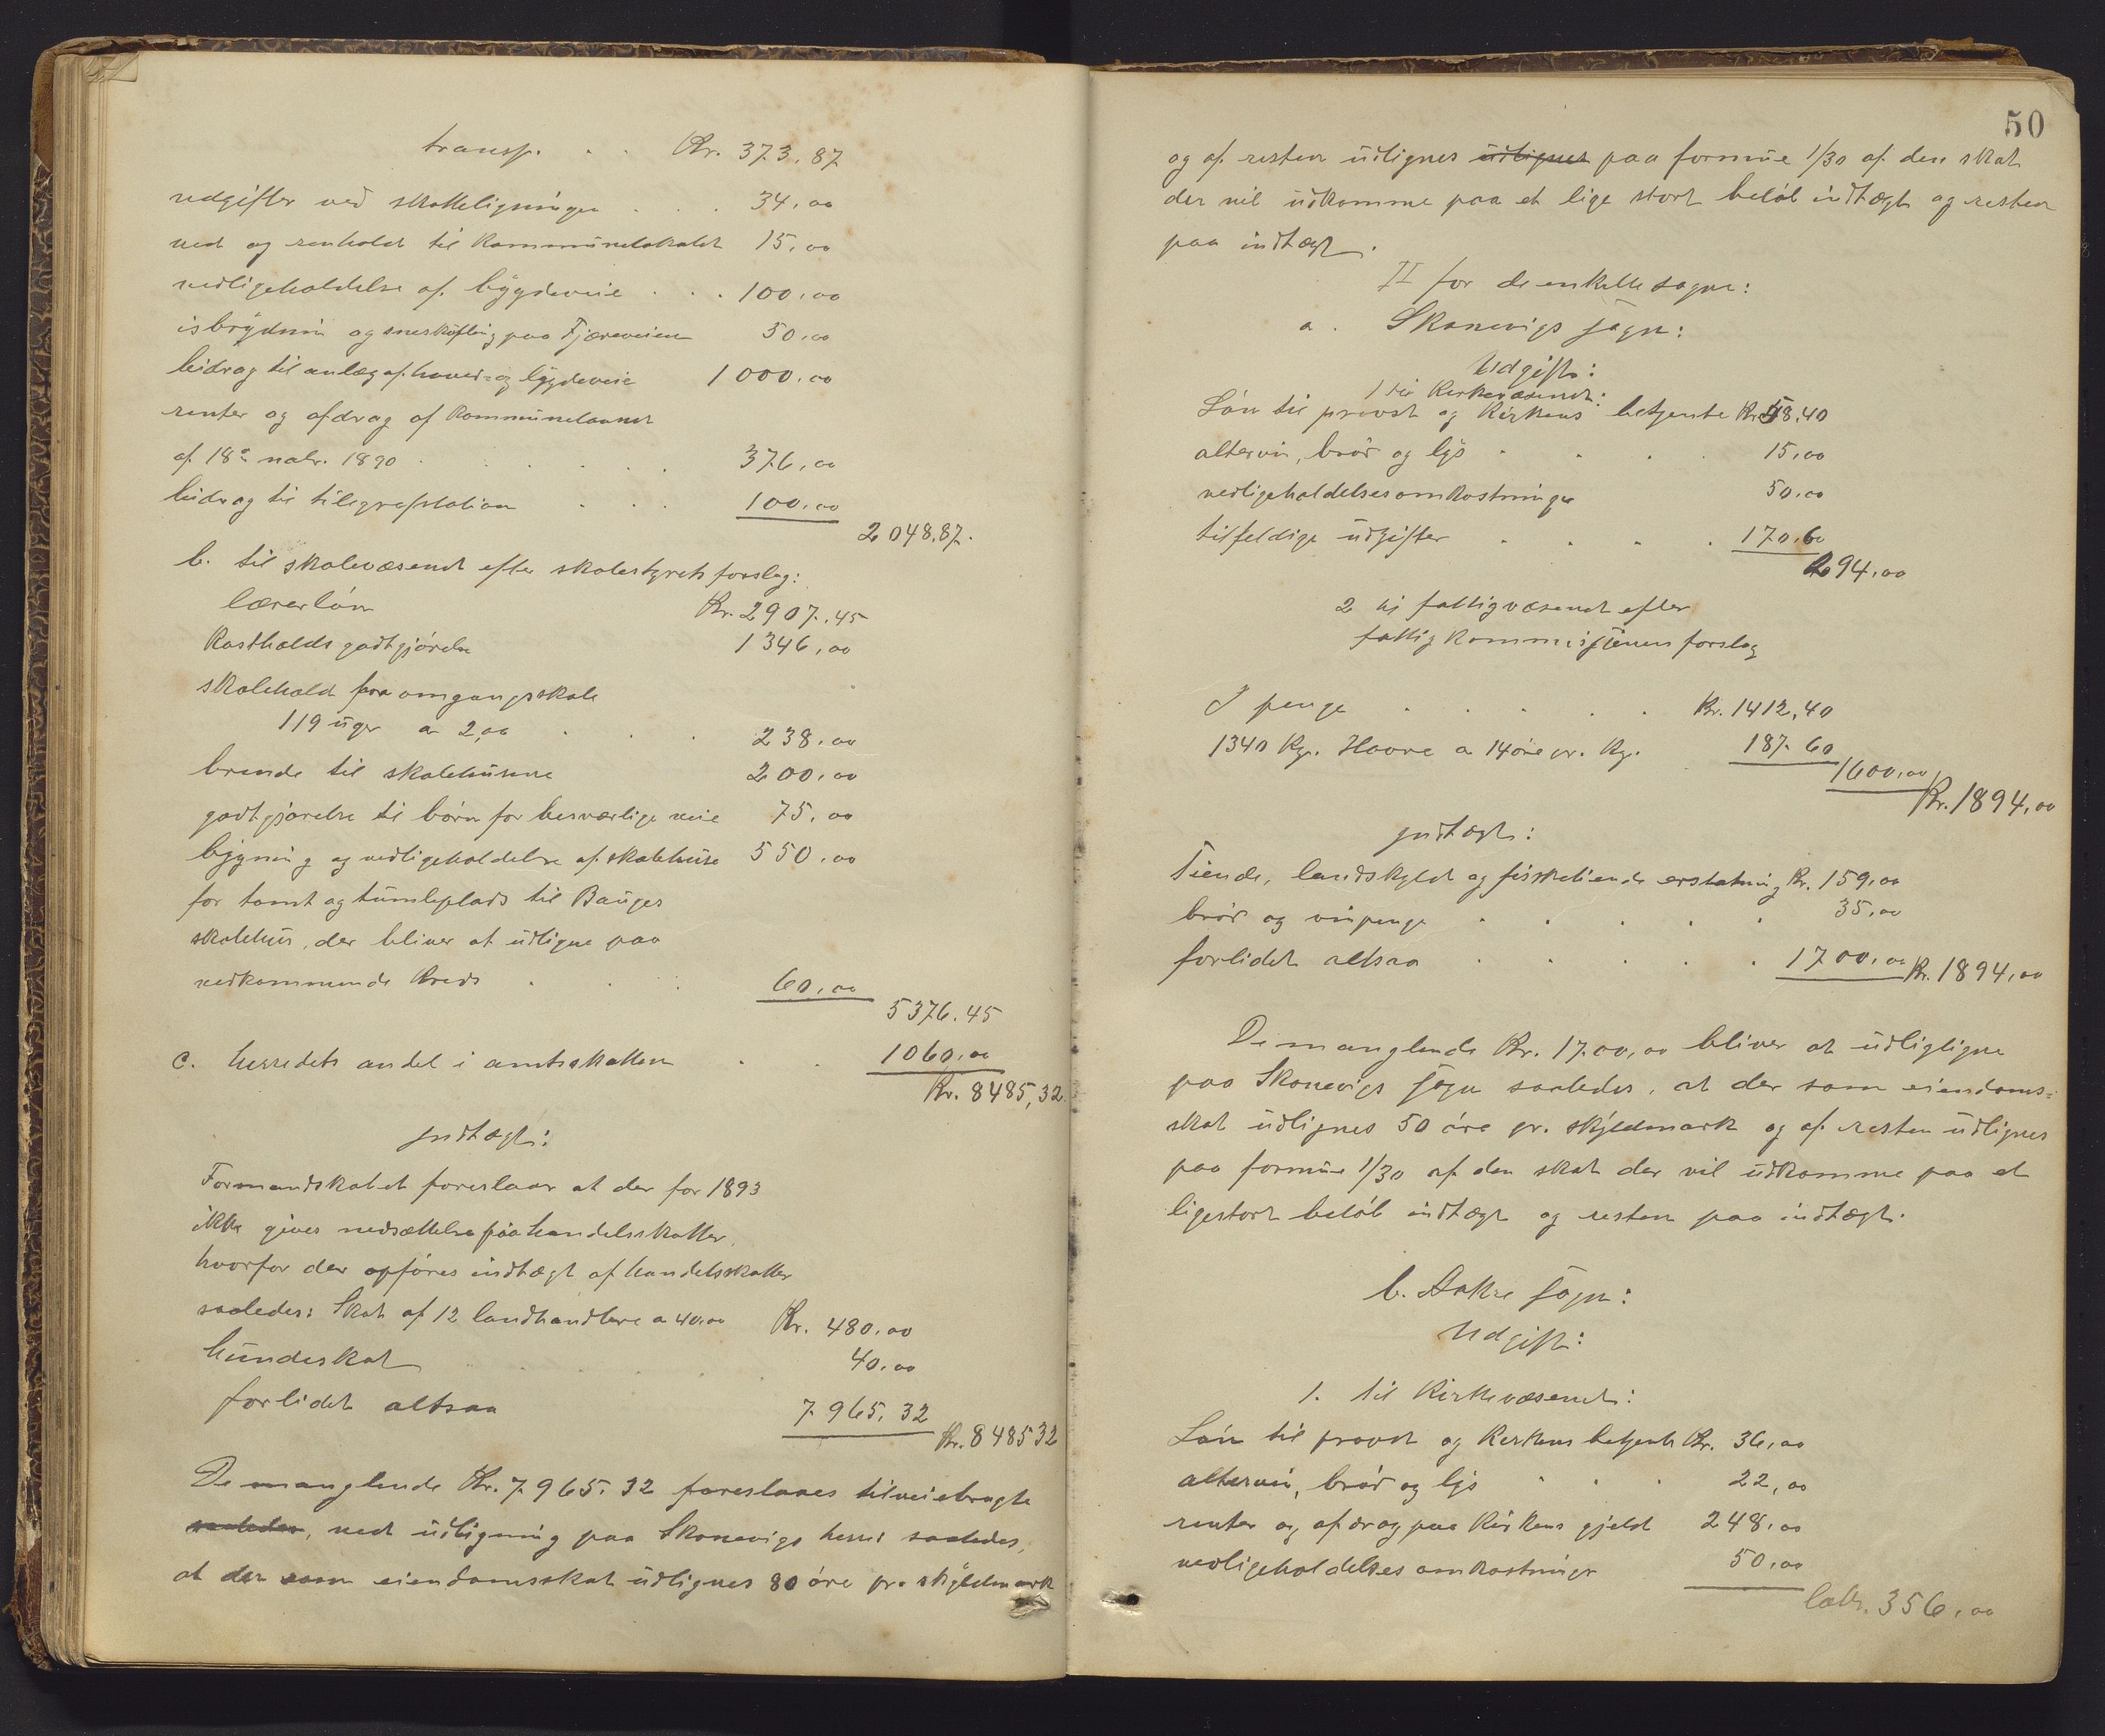 transp. . . Kr. 373.87
udgifter ved skatteligningen . . . 34,00
ved og renhold til kommunelokalet 15,00
vedligeholdelse af bygdeveie . . . 100,00
isbrydnin og sneskufling paa Fjæreveien 50,00
bidrag til anlæg af hoved- og bygdeveie 1000,00
renter og afdrag af kommunelaanet
af 18de nvbr. 1890 . . . . . . 376,00
bidrag til telegrafstation . . . 100,00
2048,87.
b. til skolevæsenet efter skolestyrets forslag:
lærerløn Kr. 2907.45
Kostholds godtgjørelse 1346,00
skolehold paa omgangsskole
119 uger a 2,00 . . . 238,00
brænde til skolehusene 200,00
godtgjørelse til børn for besværlige veie 75,00
bygning og vedligeholdelse af skolehuse 550,00
for tomt og tumleplads til Bauges
skolehus, der bliver at udligne paa
vedkommende kreds . . . 60,00
5376.45
c. herredets andel i amtsskatten . . 1060,00
Kr. 8485,32.
Indtægt:
Formandskabet foreslaar at der for 1893
ikke gives nedsættelse paa handelsskatter,
hvorfor der opføres indtægt af handelsskatter
saaledes: Skat af 12 landhandlere a 40,00 Kr. 480,00
hundeskat . . . . 40,00
forlidet altsaa 7965,32
Kr. 848532
De manglende Kr. 7965.32 foreslaaes tilveiebragte
saaledes, ved udligning paa Skonevigs herred saaledes,
at der som eiendomsskat udlignes 80 øre pr. skyldmark
50
og af resten udlignes udlignes paa formue 1/30 af den skat
der vil udkomme paa et lige stort beløb indtægt og resten
paa indtægt.
II for de enkelte sogne:
a. Skonevigs sogn:
Udgift:
1 til Kirkevæsenet:
Løn til provst og Kirkens betjente Kr. 58,40
altervin, brød og lys . . . . 15,00
vedligeholdelsesomkostninger 50,00
tilfeldige udgifter . . . . 170,60
294,00
2 til fattigvæsenet efter
fattigkommissjonens forslag
I penge . . . . . Kr. 1412,40
1340 Kg. Havre a 14 øre pr. Kg. 187.60
1600,00
Kr. 1894,00
Indtægt:
Tiende, landskyld og fisketiende erstatning Kr. 159,00
brød og vinpenge . . . . . 35,00
forlidet altsaa . . . . . 1700,00 Kr. 1894,00
De manglende Kr. 1700,00 bliver at udligligne
paa Skonevigs sogn saaledes, at der som eiendoms=
skat udlignes 50 øre pr. skyldmark og af resten udlignes
paa formue 1/30 af den skat der vil udkomme paa et
ligestort beløb indtægt og resten paa indtægt.
b. Aakre sogn:
Udgift:
1. til Kirkevæsenet:
Løn til provst og Kirkens betjente Kr. 36,00
altervin, brød og lys . . . 22,00
renter og afdrag paa Kirkens gjeld 248,00
vedligeholdelses omkostninger 50,00
latr. 356,00